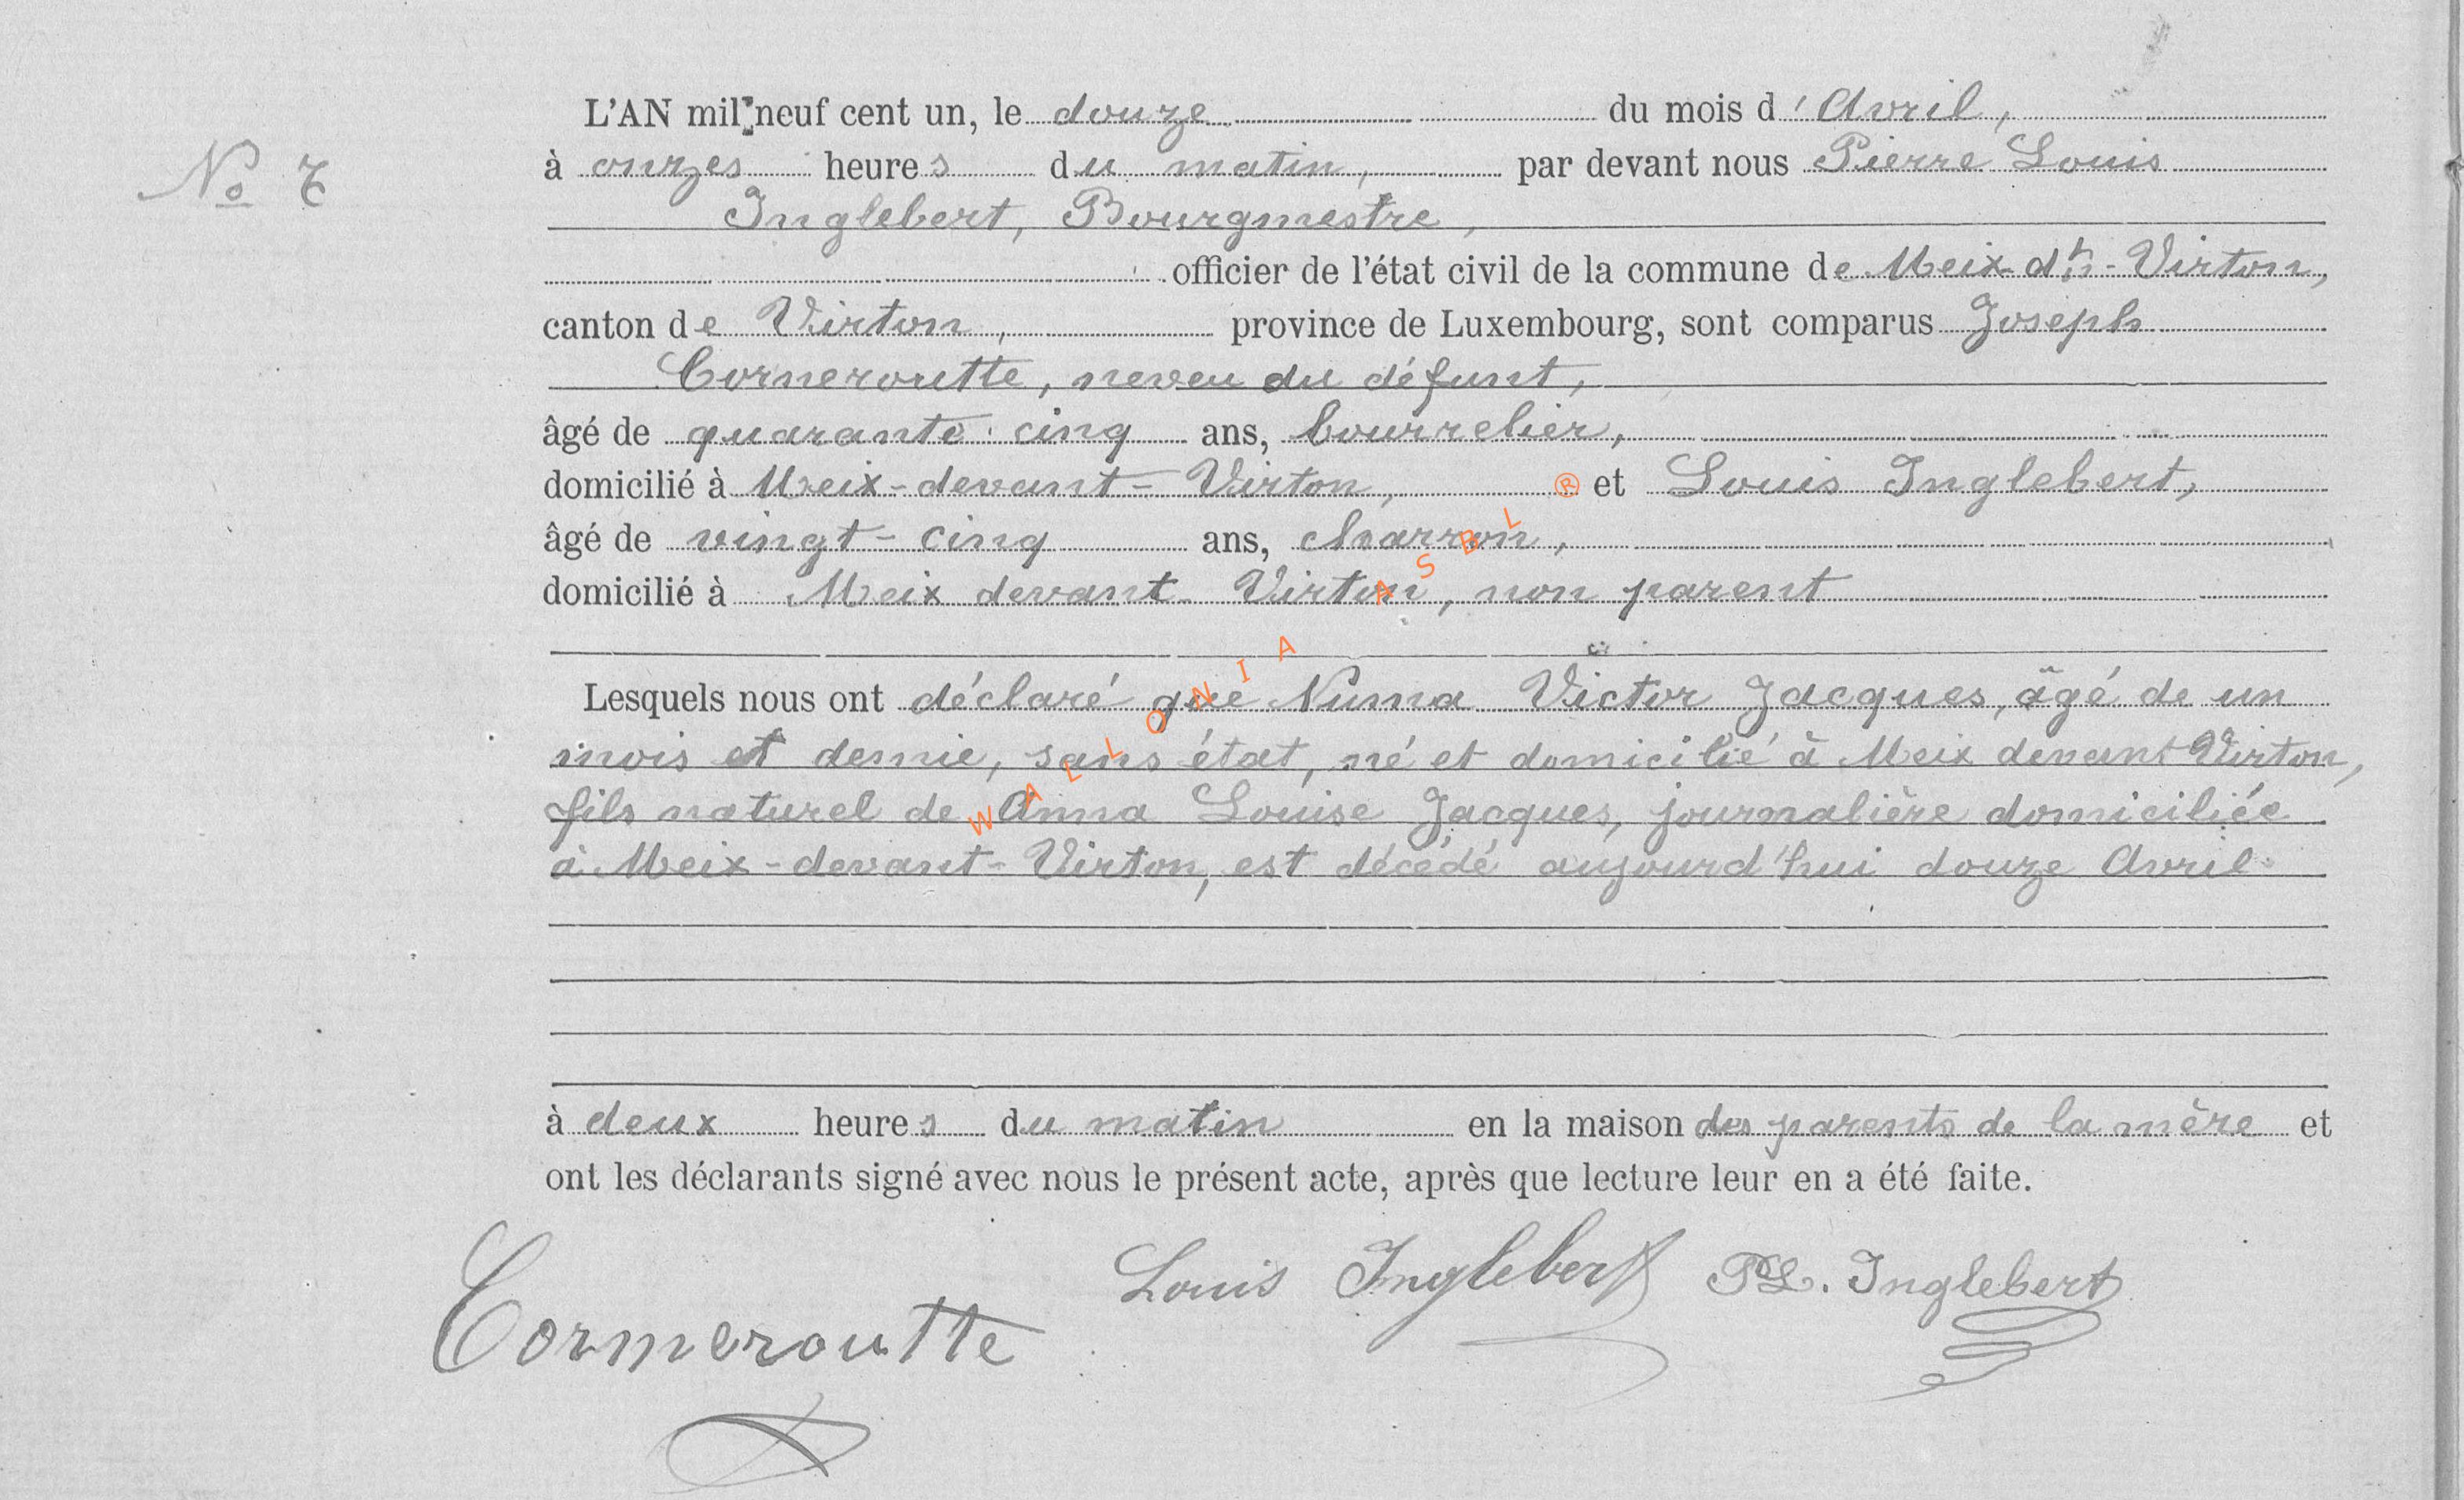 L'AN mil neuf cent un, le douze du mois d'Avril,
No 7
à onzes heures du matin, par devant nous Pierre Louis
Inglebert, Bourgmestre,
officier de l'état civil de la commune de Meix-dt-Virton,
canton de Virton, province de Luxembourg, sont comparus Joseph
Corneroutte, neveu du défunt,
âgé de quarante-cinq ans, bourrelier,
domicilié à Meix-devant-Virton, et Louis Inglebert,
âgé de vingt-cinq ans, charron,
domicilié à Meix devant Virton, non parent
Lesquels nous ont déclaré que Numa Victor Jacques, âgé de un
mois et demie, sans état, né et domicilié à Meix devant Virton,
fils naturel de Anna Louise Jacques, journalière domiciliée
à Meix-devant-Virton, est décédé aujourd'hui douze Avril
à deux heures du matin en la maison des parents de la mère et
ont les déclarants signé avec nous le présent acte, après que lecture leur en a été faite.
Louis Inglebert PL. Inglebert
Corneroutte
WALLONIA ASBL ®